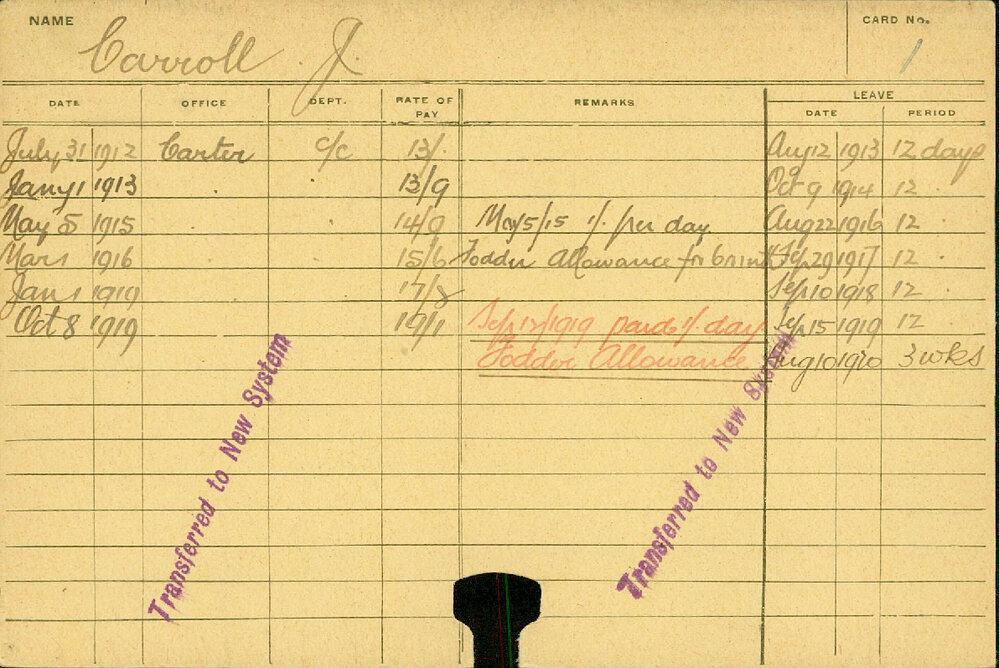 NAME CARD No.
Carroll J. 1
DATE OFFICE DEPT. RATE OF PAY REMARKS LEAVE
DATE PERIOD
July 31 1912 Carter C/C 13/. Aug 12 1913 12 days
Jany 1 1913 13/9 Oct 9 1914 12
May 5 1915 14/9 May 5/15 1/. per day Aug 22 1916 12
Mar 1 1916 15/6 Fodder Allowance for 6 mnt Sep 29 1917 12
Jan 1 1919 17/8 Sep 10 1918 12
Oct 8 1919 19/1 Sep 12/1919 paid 1/. day Sep 15 1919 12
Fodder Allowance Aug 10 1920 3 wks
Transferred to New System
Transferred to New System